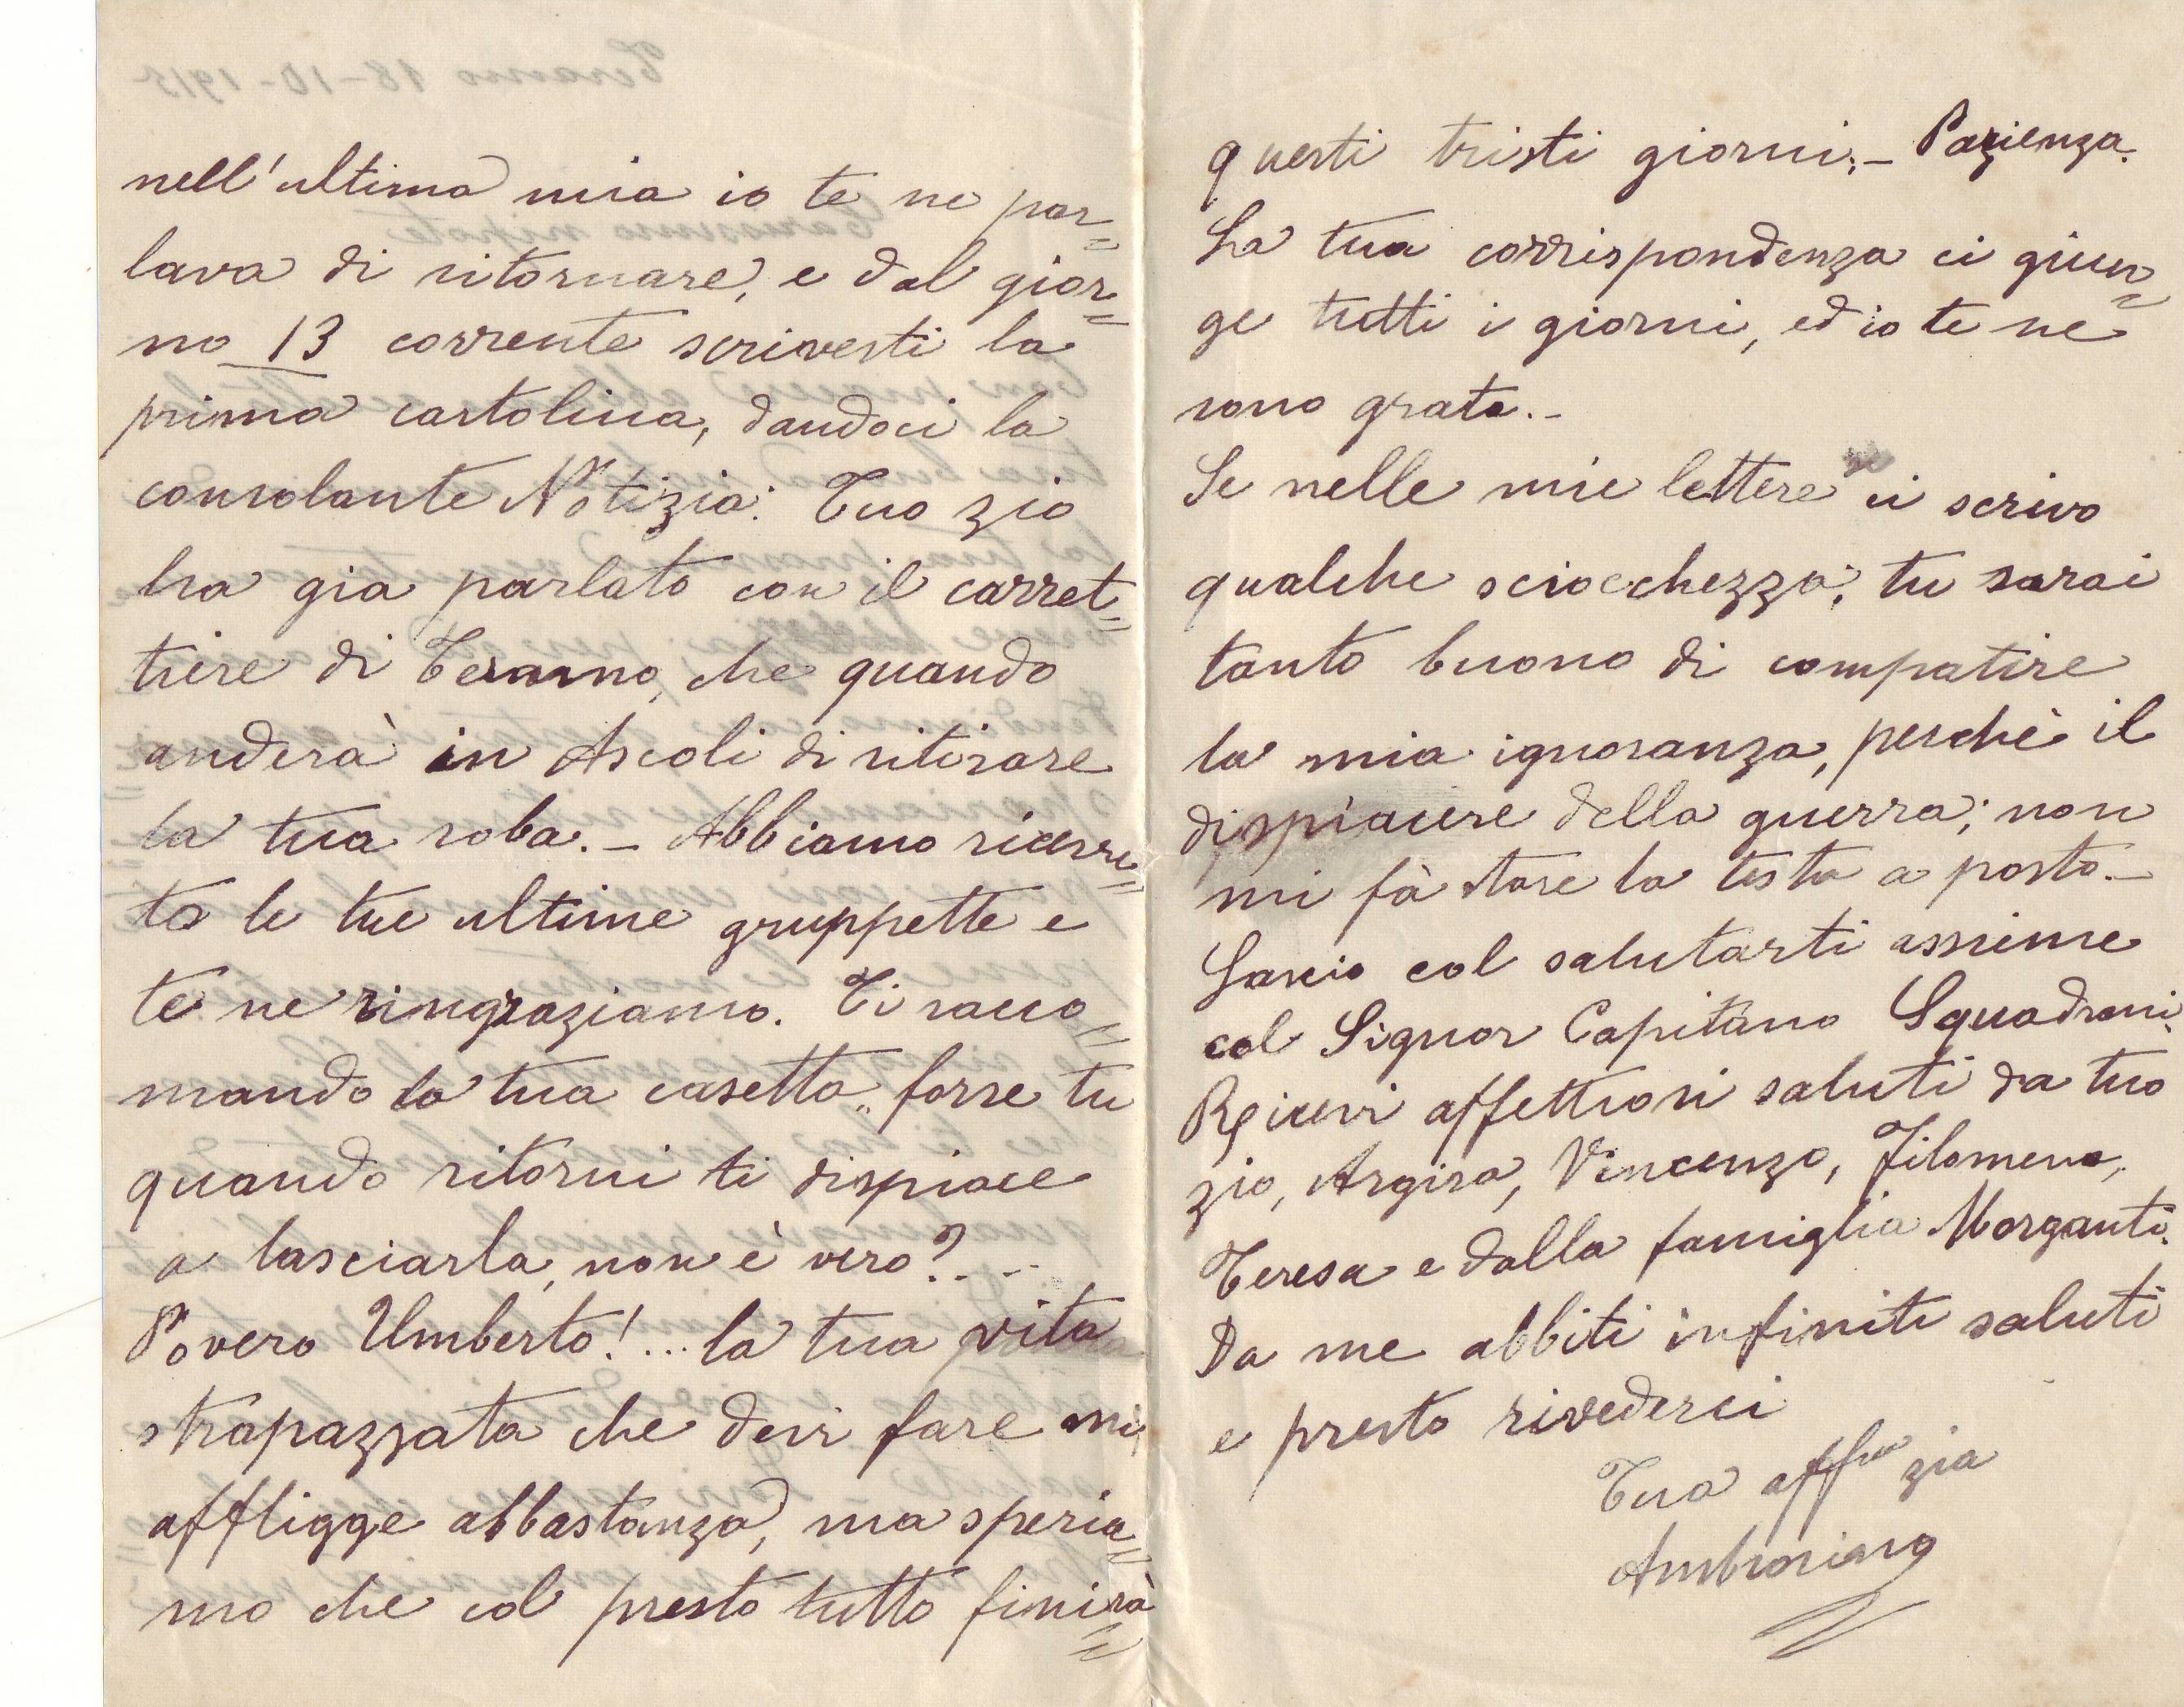 nell'ultima mia io te ne par=
lava di ritornare, e dal gior=
no 13 corrente scrivesti la
prima cartolina, dandoci la
consolante Notizia: Tuo zio
ha gia parlato con il carret=
tiere di Teramo, che quando
anderà in Ascoli di ritirare
la tua roba. - Abbiamo ricevu=
to le tue ultime gruppette e
te ne ringraziamo. Ti racco=
mando la tua casetta.. forse tu
quando ritorni ti dispiace
a lasciarla, non è vero?...
Povero Umberto!... la tua vita
strapazzata che devi fare mi
affligge abbastanza, ma speria=
mo che col presto tutto finirà=
questi tristi giorni; - Pazienza.
La tua corrispondenza ci giun=
ge tutti i giorni, ed io te ne
sono grata. -
Se nelle mie lettere ci scrivo
qualche sciocchezza; tu sarai
tanto buono di compatire
la mia ignoranza, perchè il
dispiacere della guerra; non
mi fà stare la testa a posto. -
Lascio col salutarti assieme
col Signor Capitano Squadroni.
Ricevi affettuosi saluti da tuo
zio, Argira, Vincenzo, Filomena,
Teresa e dalla famiglia Morganti.
Da me abbiti infiniti saluti
e presto rivederci
Tua affma zia
Ambrosina